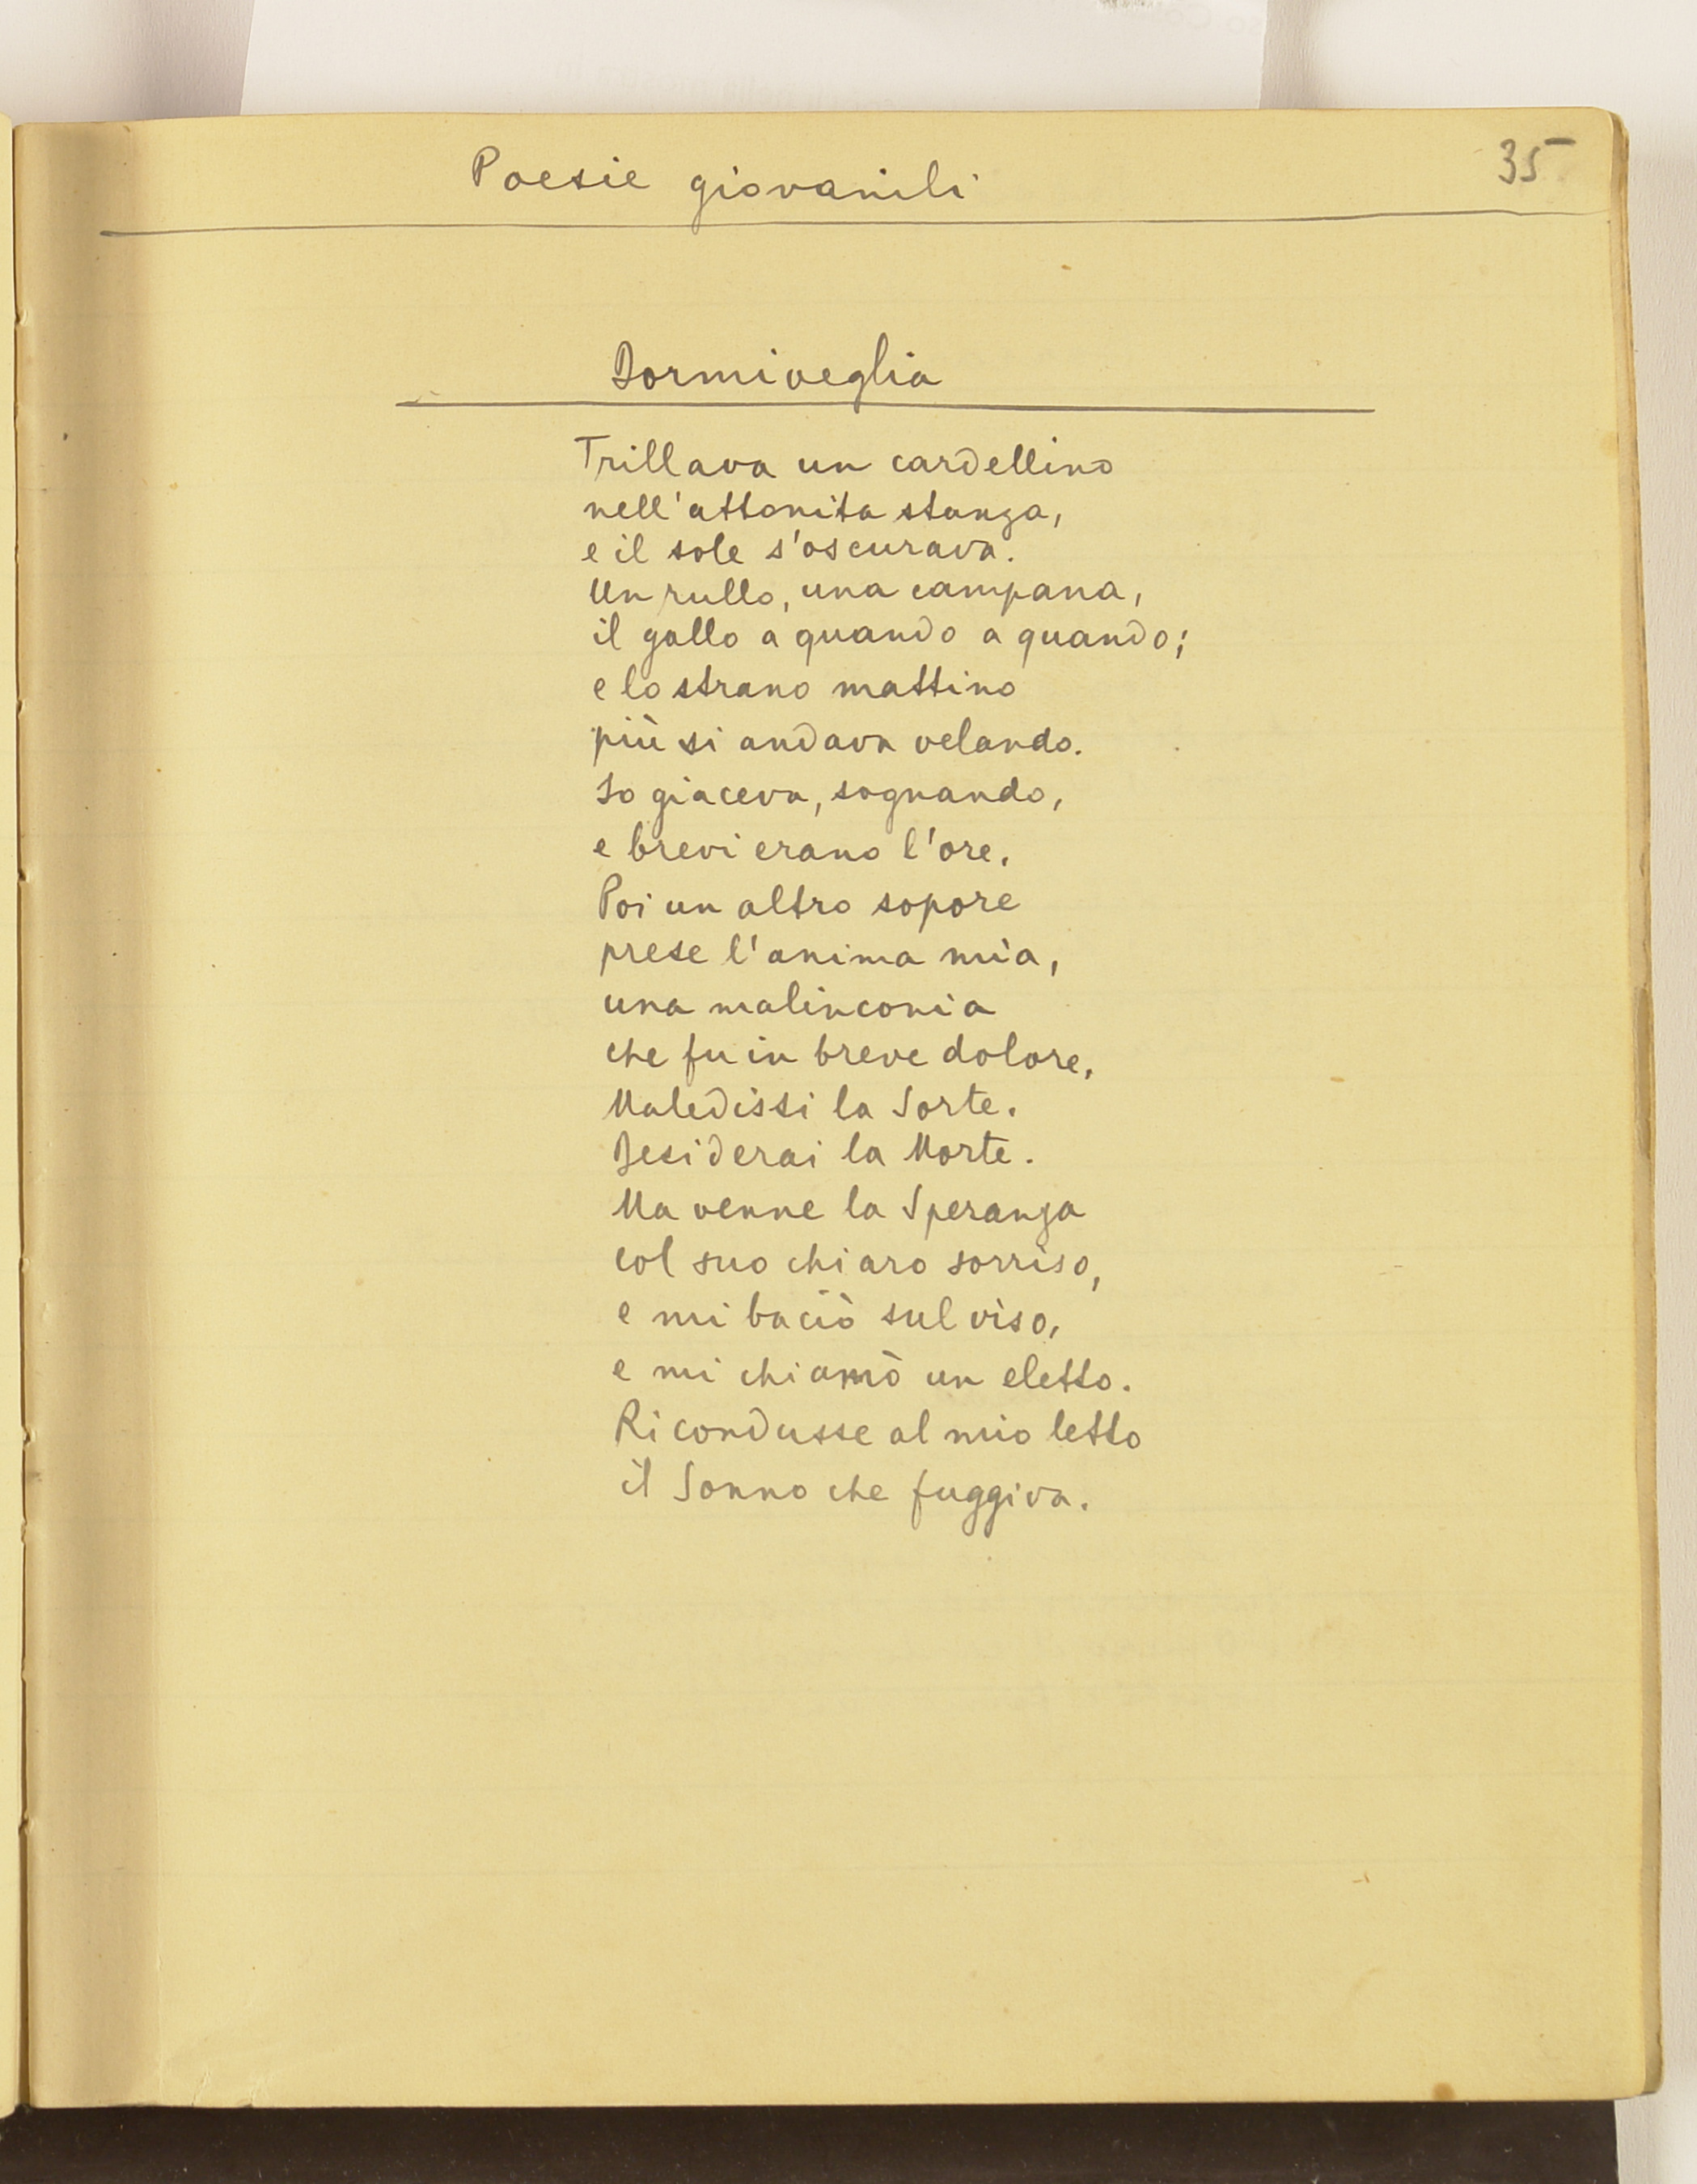 Poesie giovanili
35
Dormiveglia
Trillava un cardellino
nell'attonita stanza,
e il sole s'oscurava.
Un rullo, una campana,
il gallo a quando a quando;
e lo strano mattino
più si andava velando.
Io giaceva, sognando,
e brevi erano l'ore.
Poi un altro sopore
prese l'anima mia,
una malinconia
che fu in breve dolore.
Maledissi la Sorte.
Desiderai la Morte.
Ma venne la Speranza
col suo chiaro sorriso,
e mi baciò sul viso,
e mi chiamò un eletto.
Ricondusse al mio letto
il Sonno che fuggiva.